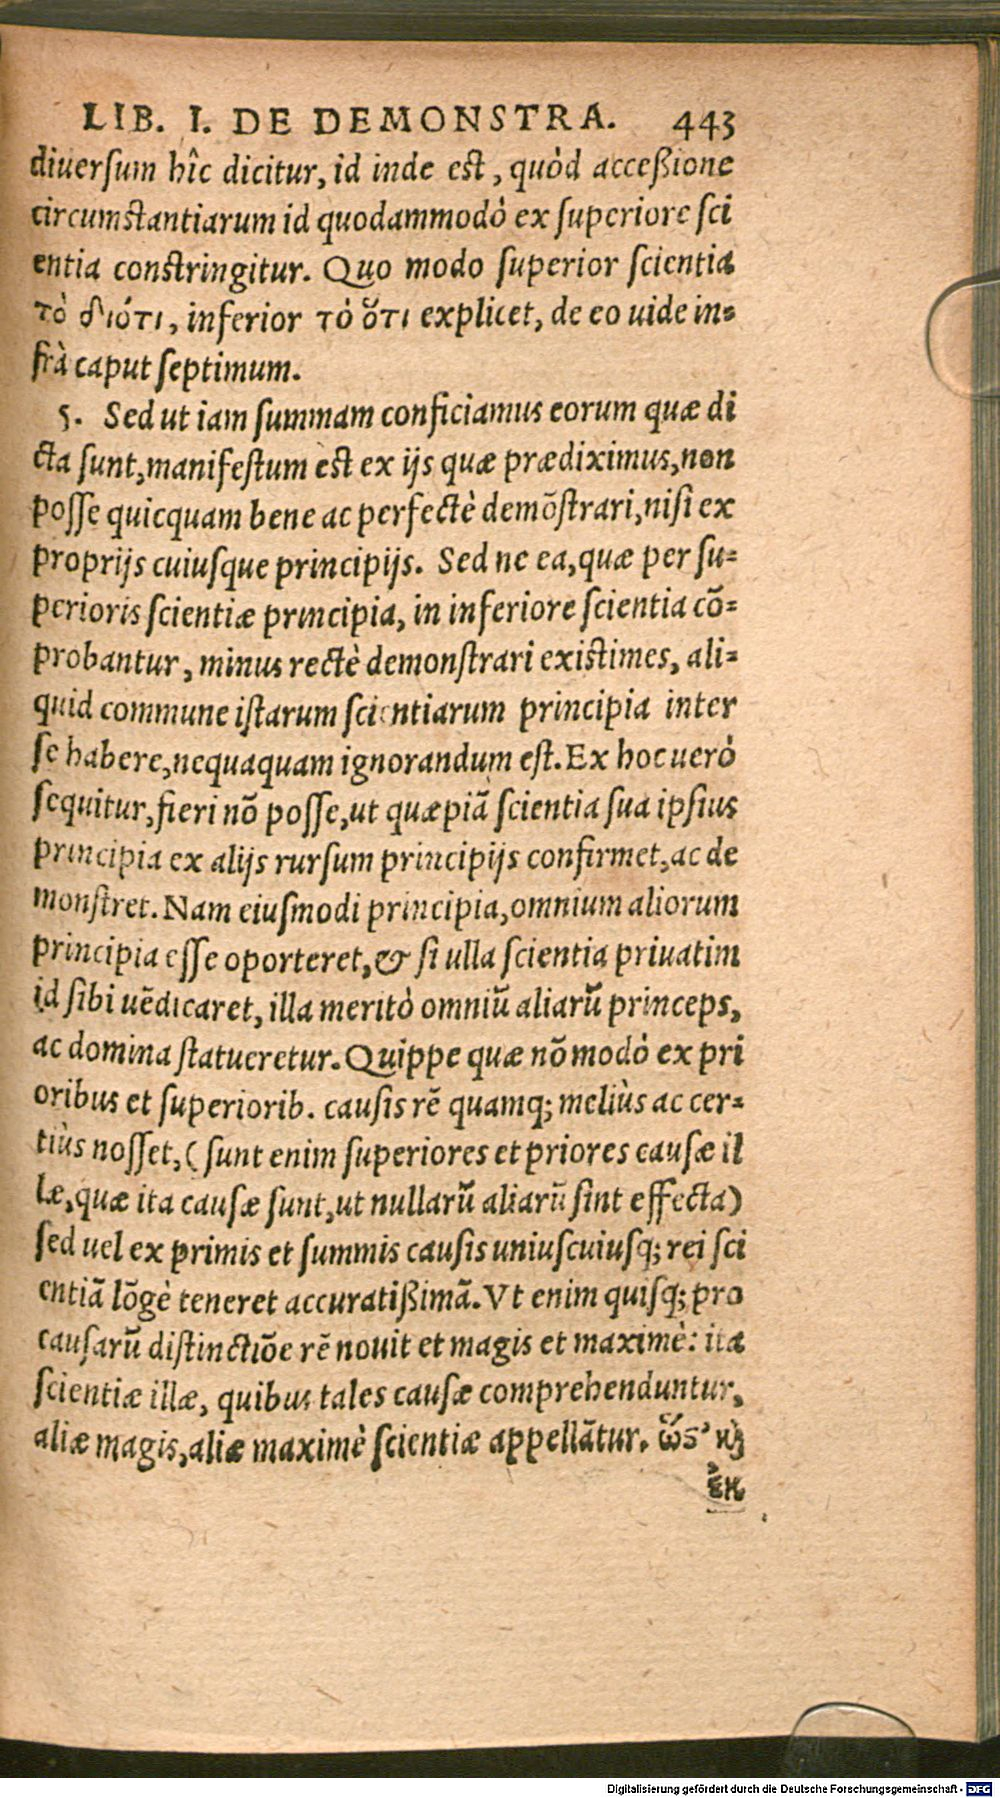 LIB. I. DE DEMONSTRA. 443
diuerſum hîc dicitur, id inde est, quòd acceßione
circumstantiarum id quodammodò ex ſuperiore ſci
entia constringitur. Quo modo ſuperior ſcientia
τὸ διότι, inferior τὸ ὅτι explicet, de eo uide in-
frà caput ſeptimum.
5. Sed ut iam ſummam conficiamus eorum quæ di
cta ſunt, manifeſtum est ex ijs quæ prædiximus, non
poſſe quicquam bene ac perfectè demōſtrari, niſi ex
proprijs cuiuſque principijs. Sed ne ea, quæ per ſu-
perioris ſcientiæ principia, in inferiore ſcientia cō-
probantur, minus rectè demonſtrari existimes, ali-
quid commune iſtarum ſcientiarum principia inter
ſe habere, nequaquam ignorandum eſt. Ex hoc uerò
ſequitur, fieri nō poſſe, ut quæpiā ſcientia ſua ipſius
principia ex alijs rurſum principijs confirmet, ac de
monſtret. Nam eiuſmodi principia, omnium aliorum
principia eſſe oporteret, & ſi ulla ſcientia priuatim
id ſibi uēdicaret, illa meritò omniū aliarū princeps,
ac domina ſtatueretur. Quippe quæ nō modò ex pri
oribus et ſuperiorib. cauſis rē quamq; meliùs ac cer-
tiùs noſſet, (ſunt enim ſuperiores et priores cauſæ il
læ, quæ ita cauſæ ſunt, ut nullarū aliarū ſint effecta)
ſed uel ex primis et ſummis cauſis uniuſcuiuſq; rei ſci
entiā lōgè teneret accuratißimā. Vt enim quiſq; pro
cauſarū diſtinctiōe rē nouit et magis et maximè: ita
ſcientiæ illæ, quibus tales cauſæ comprehenduntur,
aliæ magis, aliæ maximè ſcientiæ appellātur. ὥς' ϗ̀
ἐκ
Digitalisierung gefördert durch die Deutsche Forschungsgemeinschaft - DFG